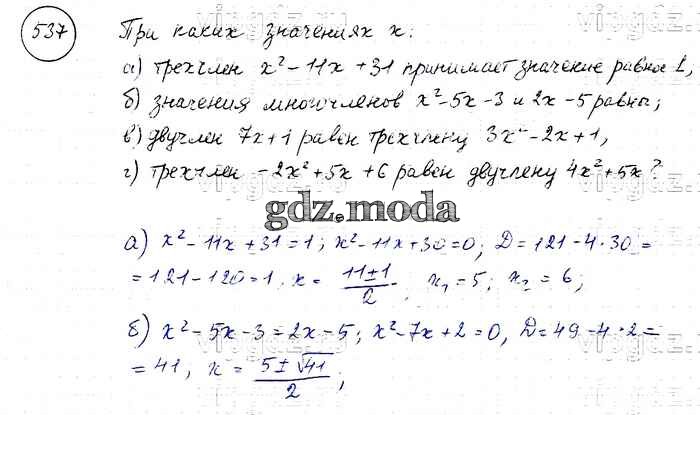 537 При каких значениях x:
а) трехчлен x² - 11x + 31 принимает значение равное 1,
б) значения многочленов x² - 5x - 3 и 2x - 5 равны;
в) двучлен 7x + 1 равен трехчлену 3x² - 2x + 1,
г) трехчлен - 2x² + 5x + 6 равен двучлену 4x² + 5x?
gdz.moda
а) x² - 11x + 31 = 1; x² - 11x + 30 = 0; D = 121 - 4·30 =
= 121 - 120 = 1, x = (11 ± 1)/2. x₁ = 5; x₂ = 6;
б) x² - 5x - 3 = 2x - 5; x² - 7x + 2 = 0, D = 49 - 4·2 =
= 41, x = (5 ± √41)/2;